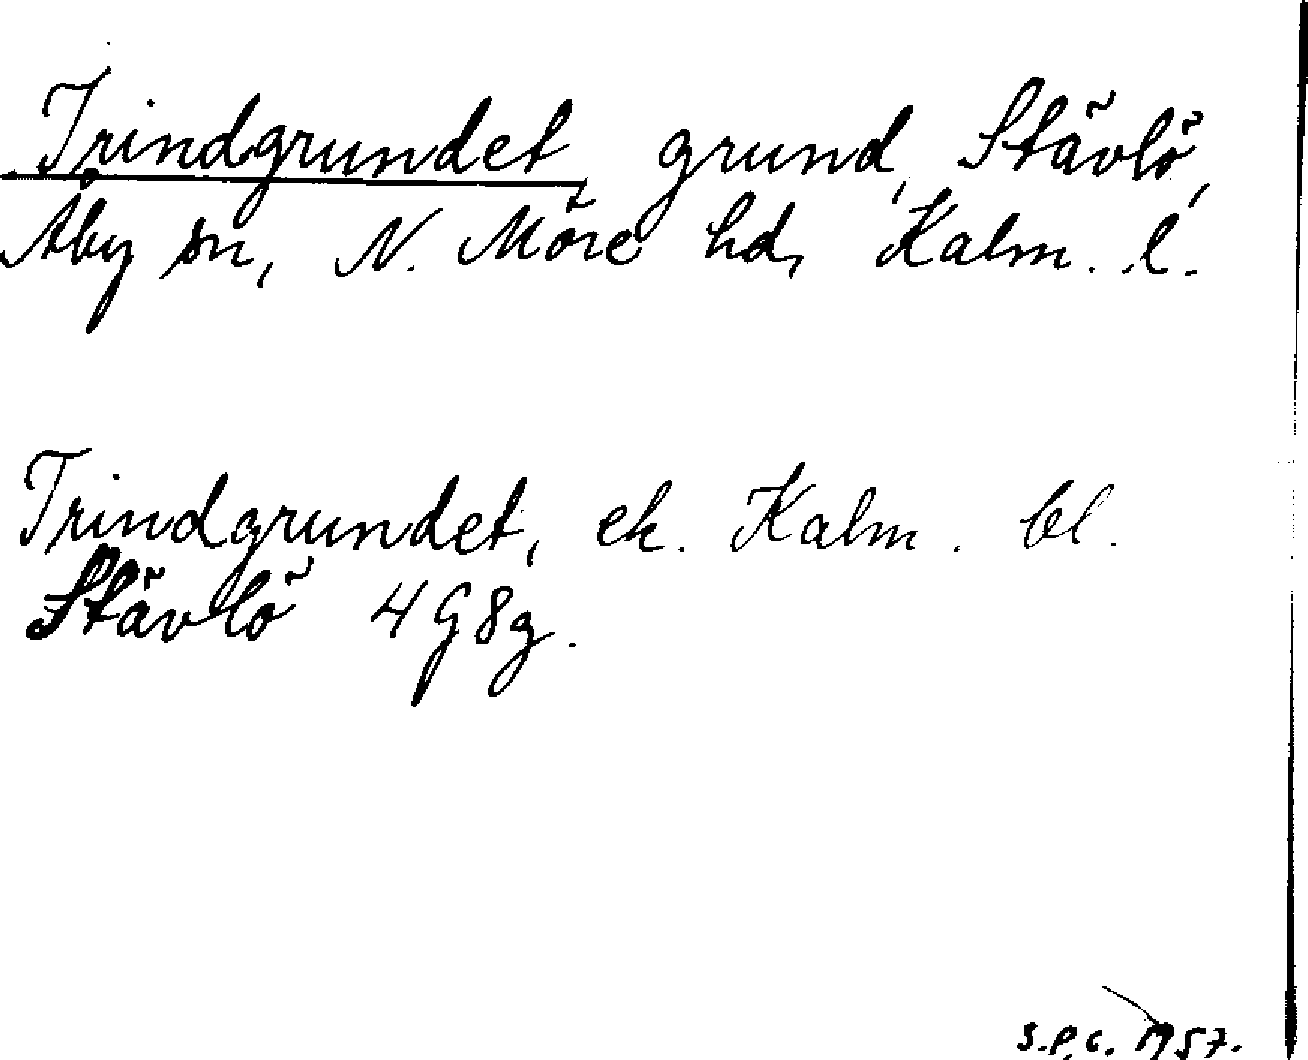 Trindgrundet, grund, Stävlö,
Åby sn, N. Möre hd, Kalm. l.
Trindgrundet, ek. Kalm. bl.
Stävlö 4 G 8 g.
S.P.C. 1957.